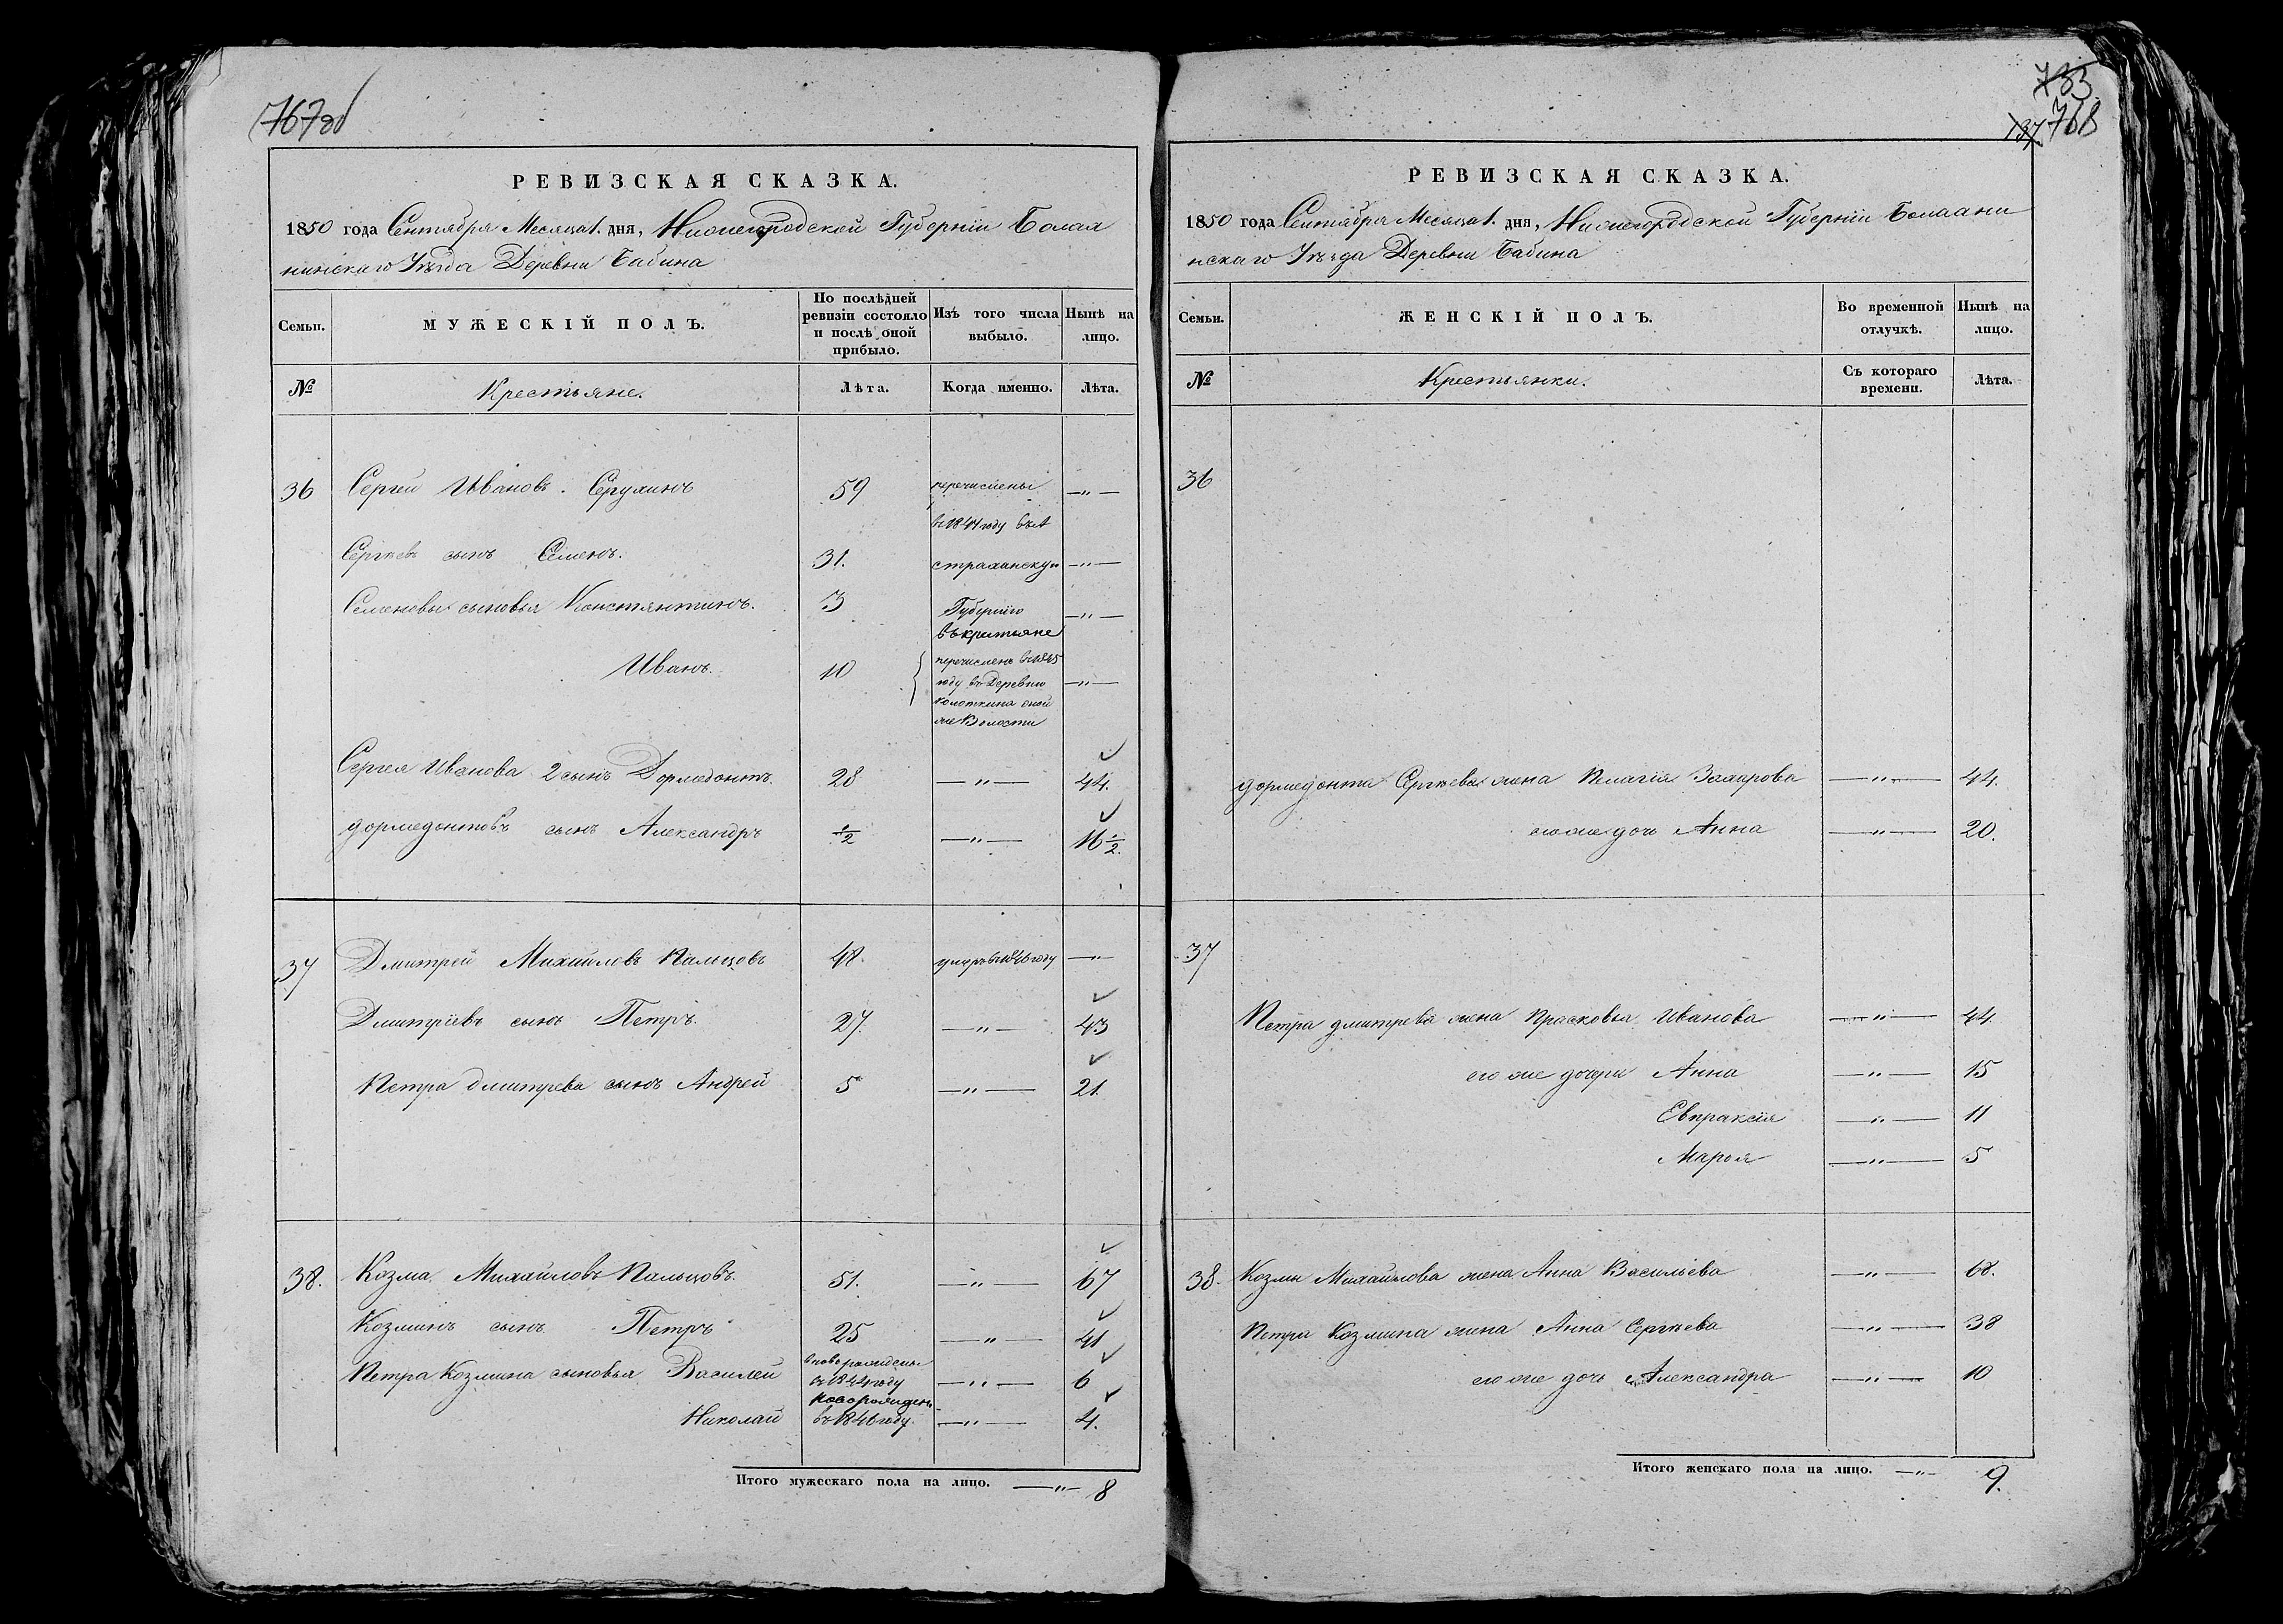 767об
РЕВИЗСКАЯ СКАЗКА.
1850 года Сентября Месяца 1. дня, Нижегородской Губернiи Балах
нинскаго Уѣзда Деревни Бабина
Семьи.
МУЖЕСКIЙ ПОЛЪ.
По послѣдней ревизiи состояло и послѣ оной прибыло.
Изъ того числа выбыло.
Нынѣ на лицо.
№
Крестьяне.
Лѣта.
Когда именно.
Лѣта.
36 Сергей Ивановъ. Сергухинъ 59 перечислены —„—
въ 1841 году въ А
Сергѣевъ сынъ Семенъ. 31. страханскую —„—
Семеновы сыновья Константинъ. 3 Губернiю —„—
въ крестьяне
Иванъ. 10 перечисленъ въ 1845
году въ Деревню —„—
Колоткина оной
же Волости
Сергея Иванова 2 сынъ Дормедонтъ 28 —„— 44.
дормедонтовъ сынъ Александръ 1/2 —„— 16 1/2.
37 Дмитрей Михайловъ Пальцовъ 48. умеръ въ 1846 году —„—
Дмитрiевъ сынъ Петръ. 27. —„— 43
Петра дмитрева сынъ Андрей 5 —„— 21.
38. Козма Михайловъ Пальцовъ. 51. —„— 67
Козминъ сынъ Петръ 25 —„— 41
Петра Козмина сыновья Василей новорожденъ
въ 1844 году —„— 6
новорожденъ
Николай въ 1846 году. —„— 4.
Итого мужескаго пола на лицо. —„— 8
733
737 768
РЕВИЗСКАЯ СКАЗКА.
1850 года Сентября Месяца 1. дня, Нижегородской Губернiи Балахни
нскаго Уѣзда Деревни Бабина
Семьи.
ЖЕНСКIЙ ПОЛЪ.
Во временной отлучкѣ.
Нынѣ на лицо.
№
Крестьянки.
Съ котораго времени.
Лѣта.
36
дормедонта Сергѣева жена Пелагiя Захарова —„— 44.
его же дочь Анна —„— 20.
37
Петра дмитрева жена Прасковья Иванова —„— 44.
его же дочери Анна —„— 15
Евпраксiя —„— 11
Марья —„— 5
38. Козмы Михайлова жена Анна Васильева —„— 68.
Петра Козмина жена Анна Сергѣева —„— 38
его же дочь Александра —„— 10
Итого женскаго пола на лицо. —„— 9.